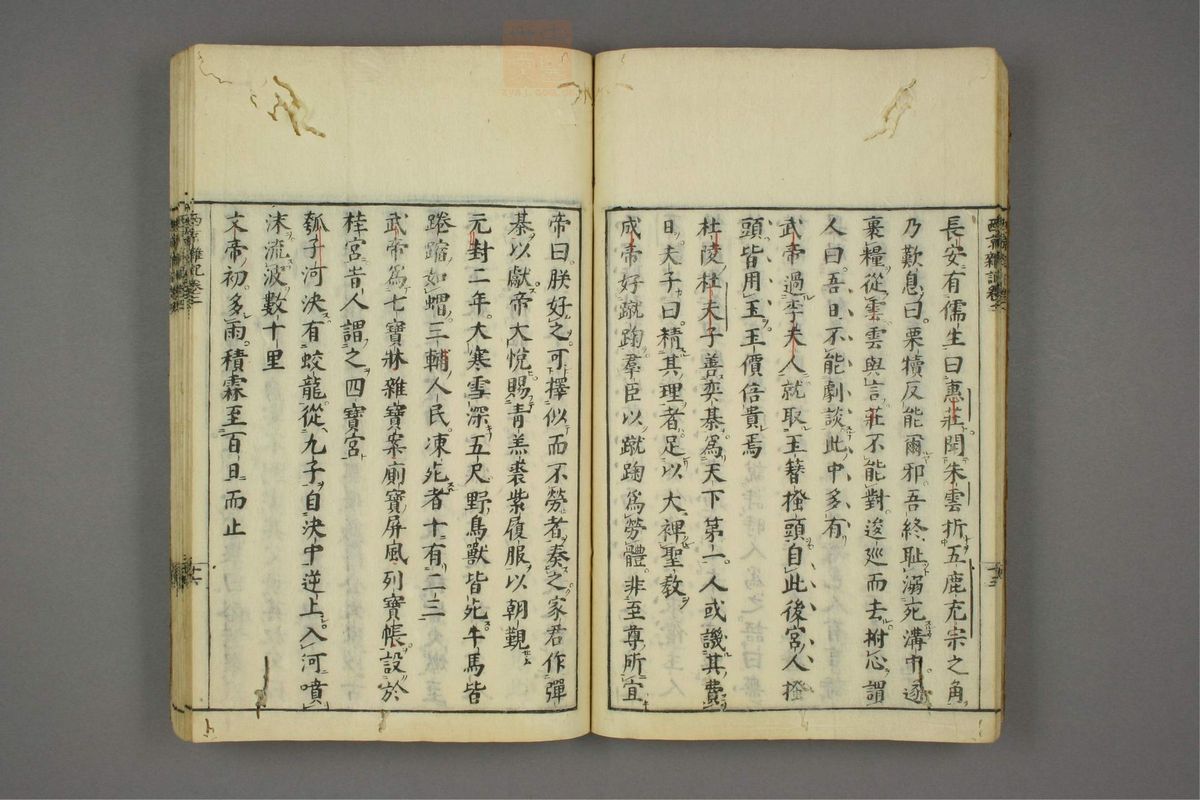 長安有儒生曰惠莊聞朱雲折五鹿充宗之角
乃歎息曰栗犢反能爾邪吾終耻溺死溝中遂
裹糧從雲雲與言莊不能對逡巡而去拊心謂
人曰吾口不能劇談此中多有
武帝過李夫人就取玉簪搔頭自此後宮人搔
頭皆用玉玉價倍貴焉
杜陵杜夫子善奕棊爲天下第一人或譏其費
日夫子曰精其理者足以大裨聖教
成帝好蹴踘羣臣以蹴踘爲勞體非至尊所宜
帝曰朕好之可擇似而不勞者奏之家君作彈
棊以獻帝大悅賜青羔裘紫履服以朝覲
元封二年大寒雪深五尺野鳥獸皆死牛馬皆
踡蹜如蝟三輔人民凍死者十有二三
武帝爲七寳牀雜寳案廁寳屏風列寳帳設於
桂宮昔人謂之四寳宮
瓠子河決有蛟龍從九子自決中逆上入河噴
沫流波數十里
文帝初多雨積霖至百日而止
西京雜記卷二